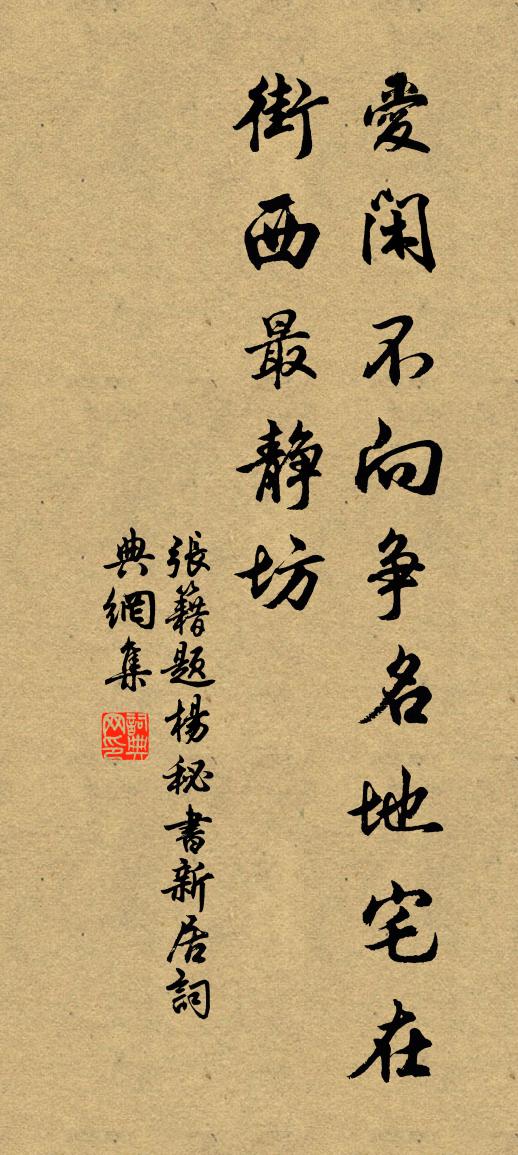 愛閑不向争名地宅在
街西最静坊
張籍題楊秘書新居詞
典網集
詞典網印